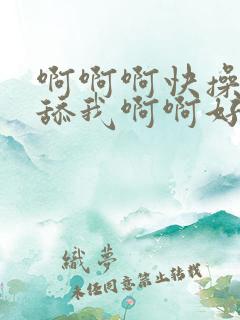 啊啊啊快操
舔我啊啊好
織夢
未经同意禁止转载